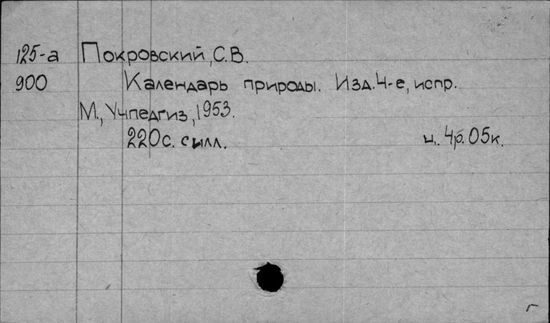 125-а Покровский, С.В.
900 Календарь природы. Изд. 4-е, испр.
М., Учпедгиз, 1953.
220 с. с илл. ц. 4р. 05к.
г